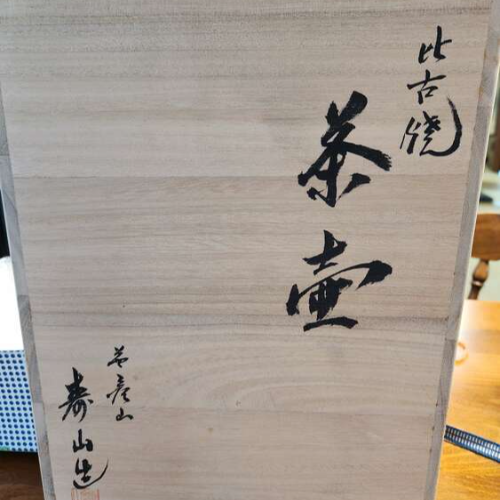 比古焼
茶壷
英彦山
寿山造